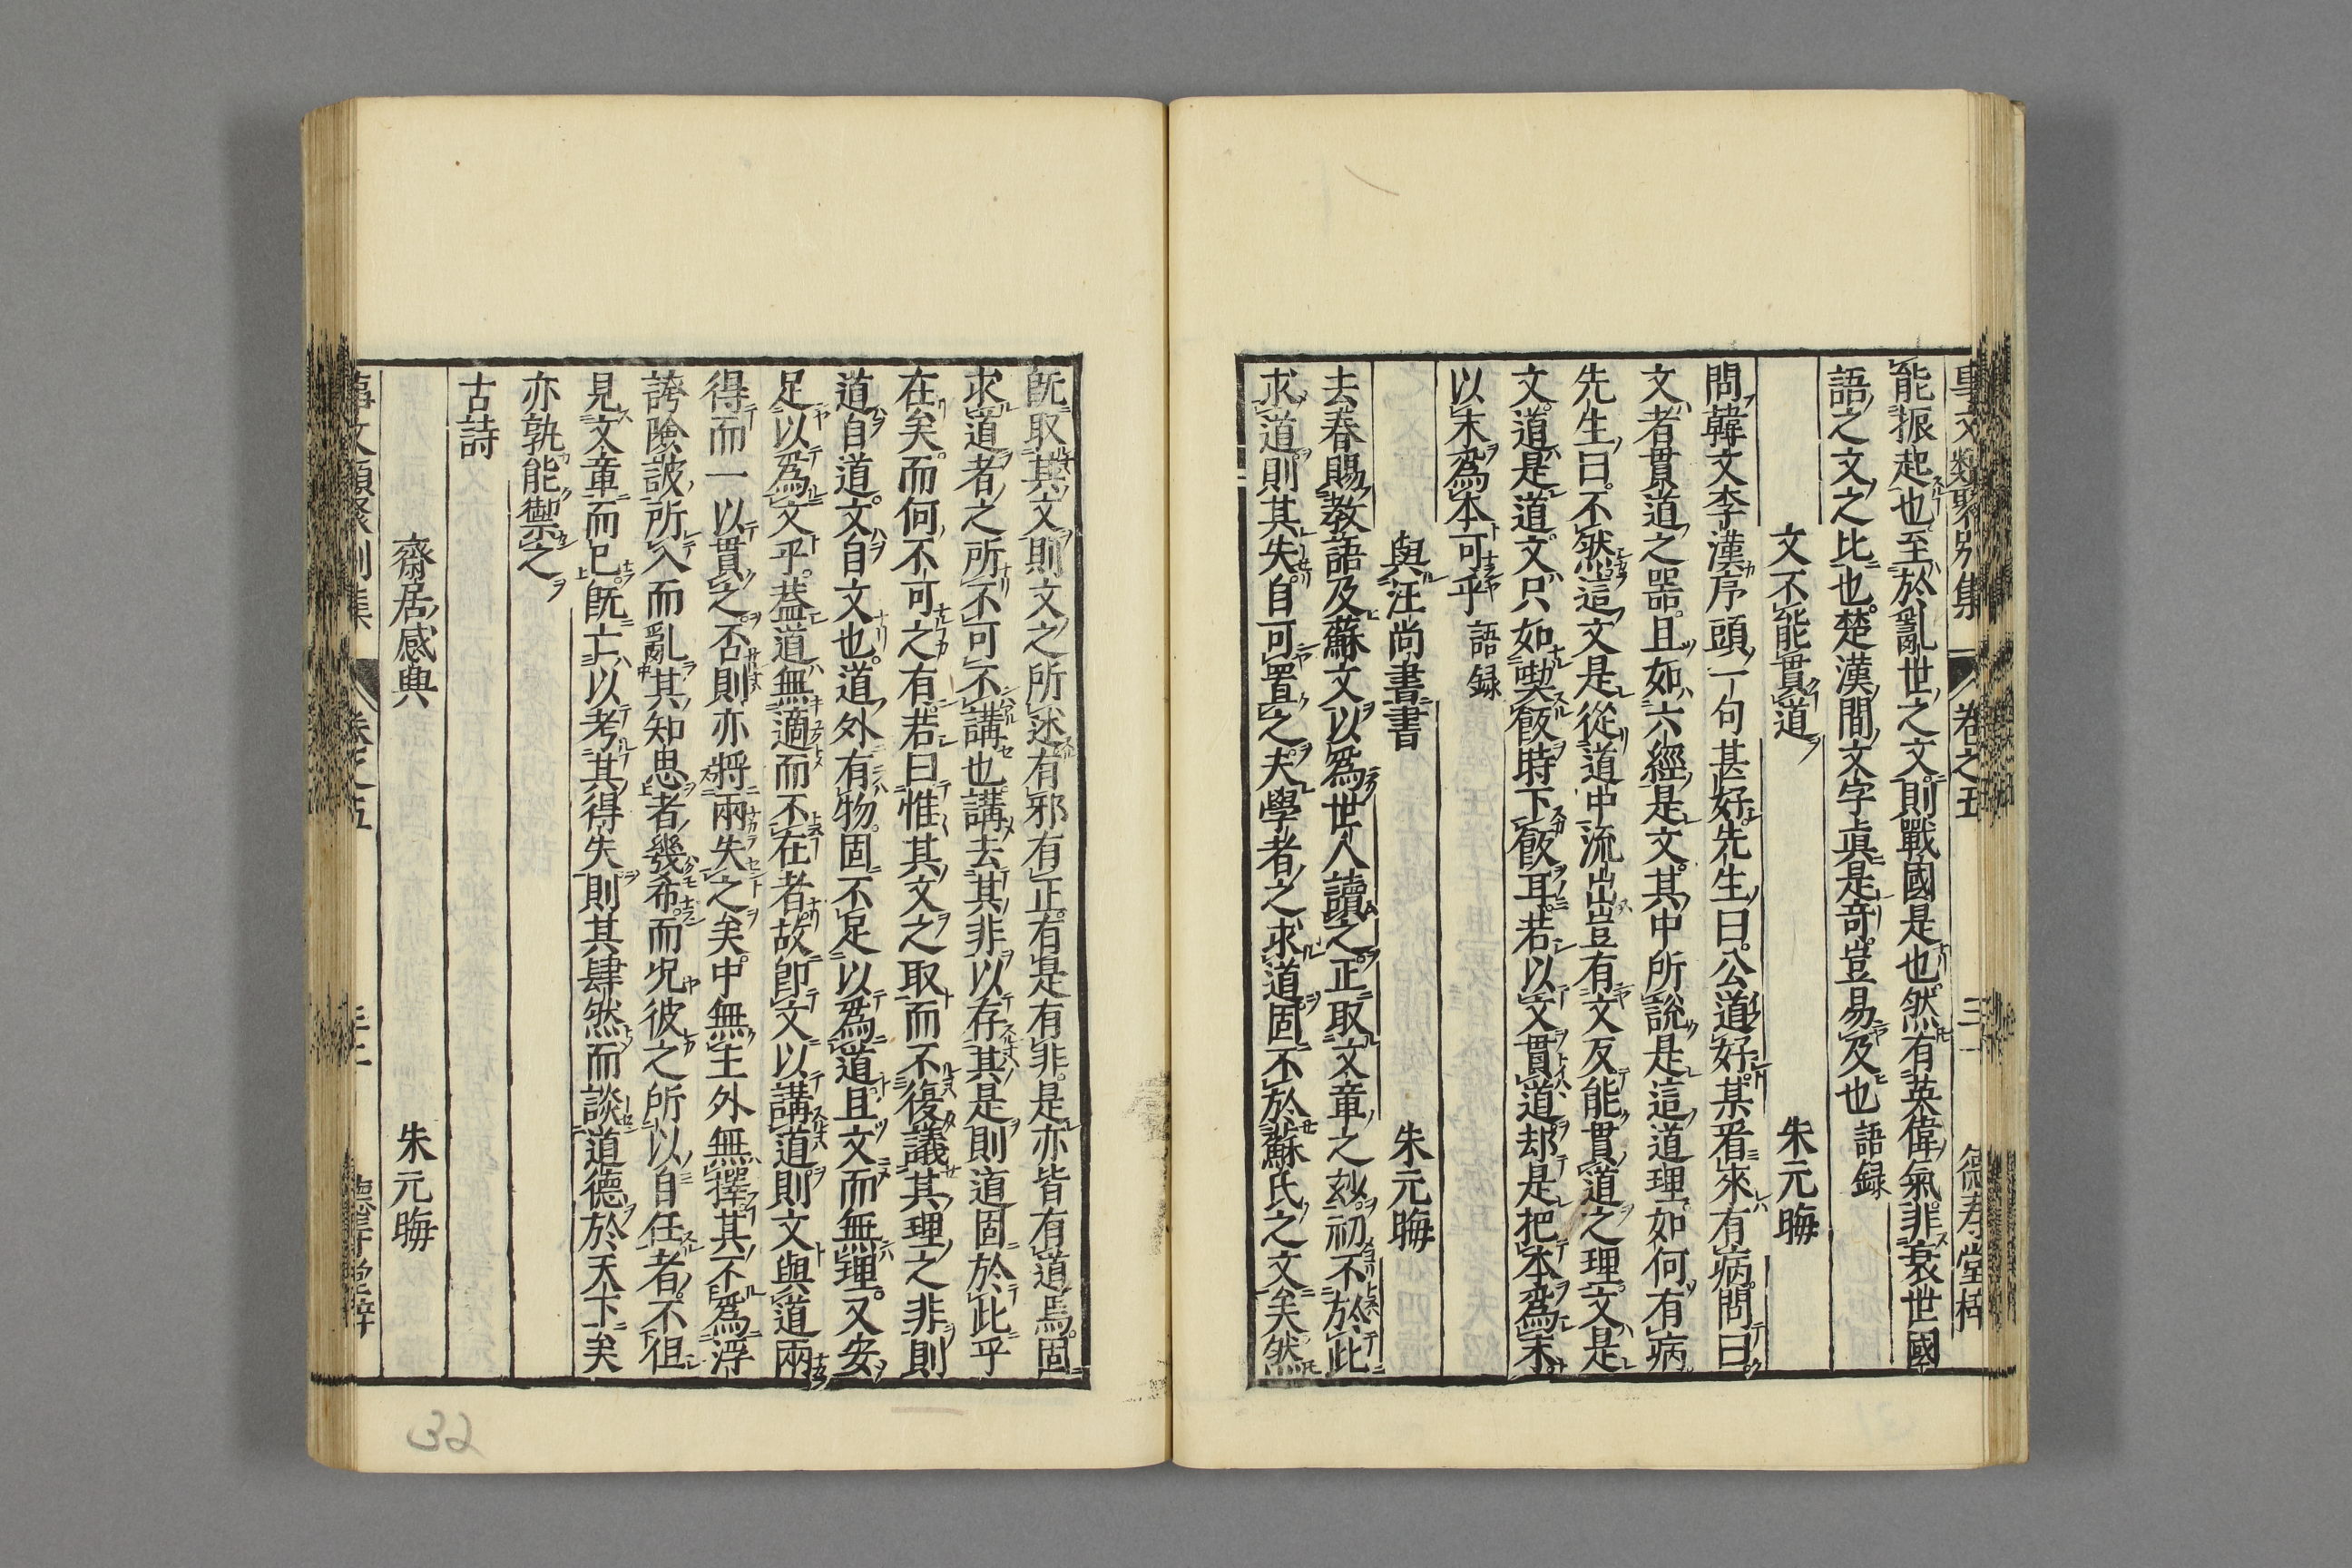 事文類聚別集 卷之五 三一 德壽堂梓
能振起也至於亂世之文則戰國是也然有英偉氣非衰世國
語之文之比也楚漢間文字眞是竒豈易及也 語録
文不能貫道 朱元晦
問韓文李漢序頭一句甚好先生曰公道好某看來有病問曰
文者貫道之噐且如六經是文其中所説是這道理如何有病
先生曰不然這文是從道中流出豈有文反能貫道之理文是
文道是道文只如喫飯時下飯耳若以文貫道却是把本爲末
以末爲本可乎 語録
與汪尚書書 朱元晦
去春賜教語及蘇文以爲世人讀之正取文章之玅初不於此
求道則其失自可置之夫學者之求道固不於蘇氏之文矣然
旣取其文則文之所述有邪有正有是有非是亦皆有道焉固
求道者之所不可不講也講去其非以存其是則道固於此乎
在矣而何不可之有若曰惟其文之取而不復議其理之非則
道自道文自文也道外有物固不足以爲道且文而無理又安
足以爲文乎葢道無適而不在者故卽文以講道則文與道兩
得而一以貫之否則亦將兩失之矣中無主外無擇其不爲浮
誇險詖所入而亂其知思者幾希而况彼之所以自任者不徂
見文章而已旣亡以考其得失則其肆然而談道德於天下矣
亦孰能禦之
古詩
齋居感典 朱元晦
事文類聚別集 卷之五 三二 德壽堂梓
32